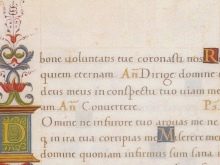 bone voluntatis tue coronasti nos R
quiem eternam Añ Dirige domine
deus meus in conspectu tuo uiam me
am Añ Convertere Ps
Domine ne infurore tuo arguas me ne
in ira tua corripias me Miserere m
domine quoniam infirmus sum san